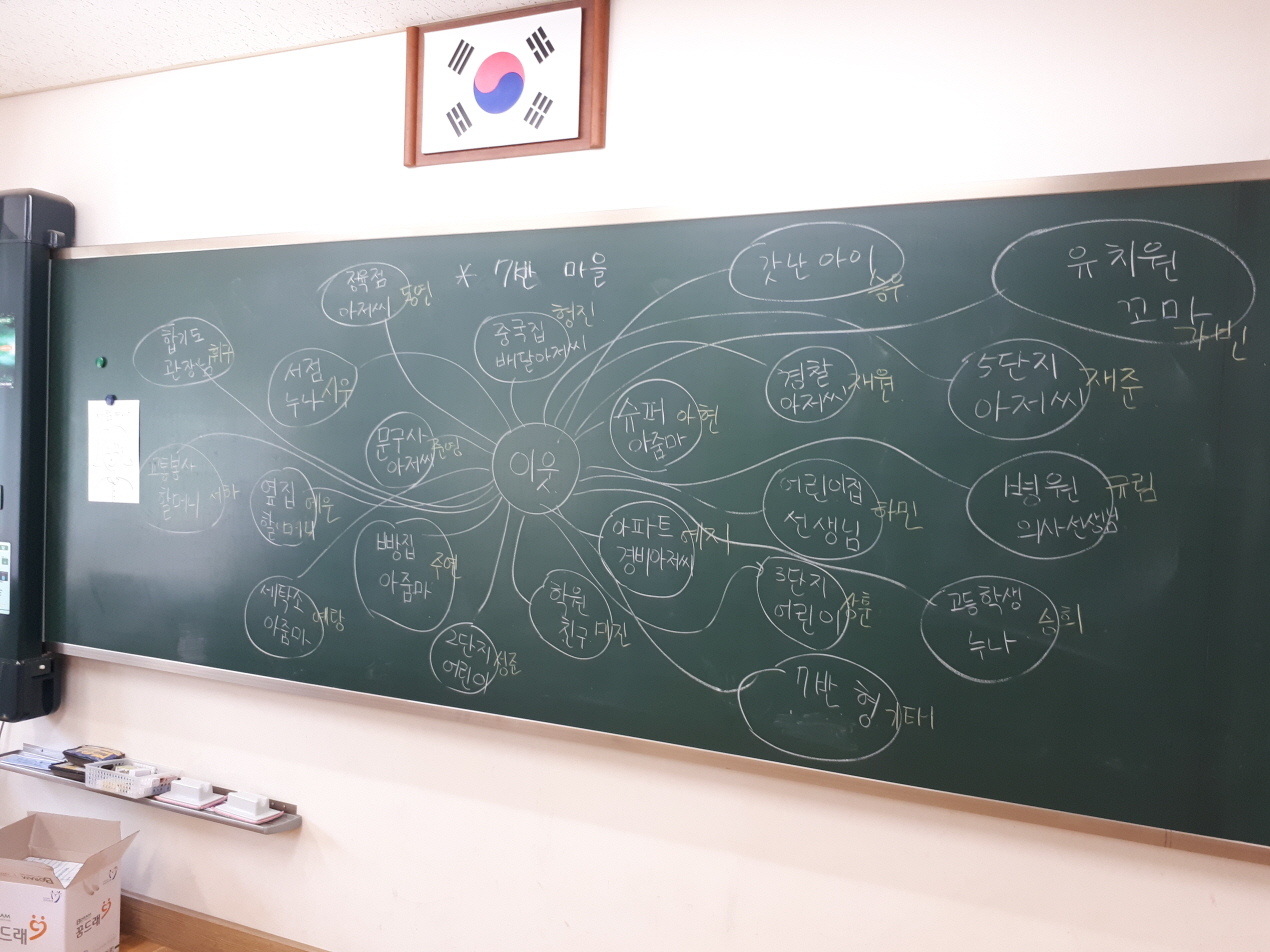 정육점
아저씨 동연
* 7반 마을
갓난 아이 승우
유치원
꼬마
합기도
관장님 휘구
서점
누나 시우
중국집 형진
배달아저씨
문구사
아저씨
슈퍼 아현
아줌마
경찰 재원
아저씨
5단지 재준
아저씨
이웃
고물불사
할머니 서하
옆집 예은
할머니
빵집
아줌마 주연
아파트 예지
경비아저씨
어린이집
선생님 하민
병원 규림
의사선생님
세탁소
아줌마 예랑
2단지
어린이 성준
학원
친구 미진
3단지
어린이 상훈
고등학생
누나 승희
7반 형 기태
꿈드래